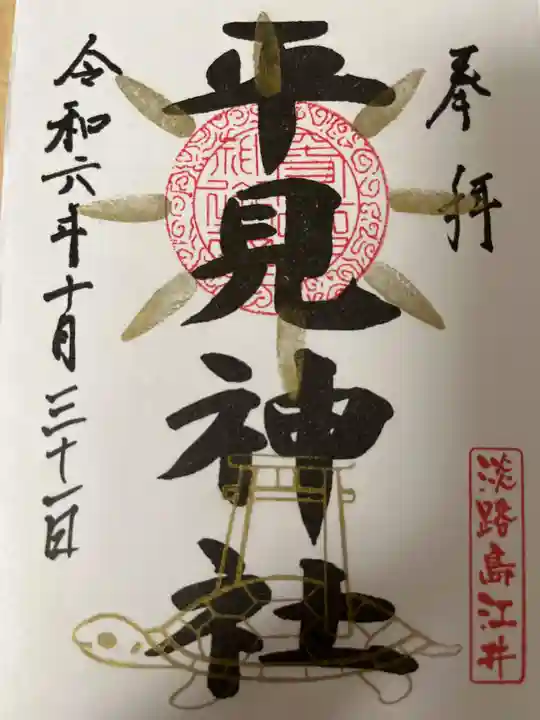 奉拝
平見神社
令和六年十月三十一日
淡路島江井